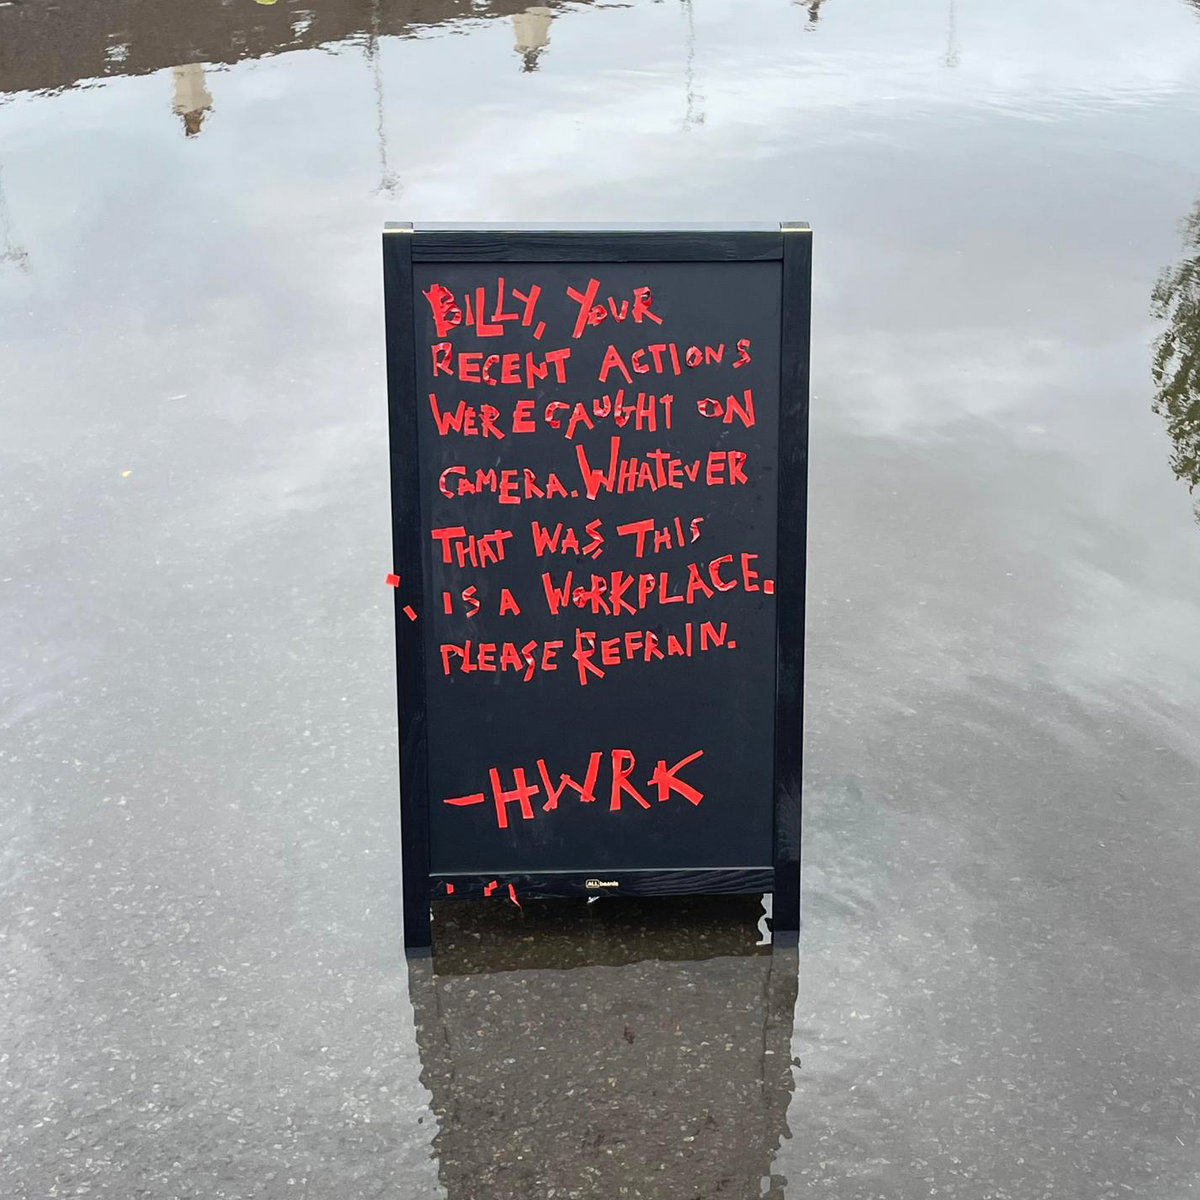 BILLY, YOUR
RECENT ACTIONS
WERE CAUGHT ON
CAMERA. WHATEVER
THAT WAS, THIS
IS A WORKPLACE.
PLEASE REFRAIN.
-HWRK
ALLboards